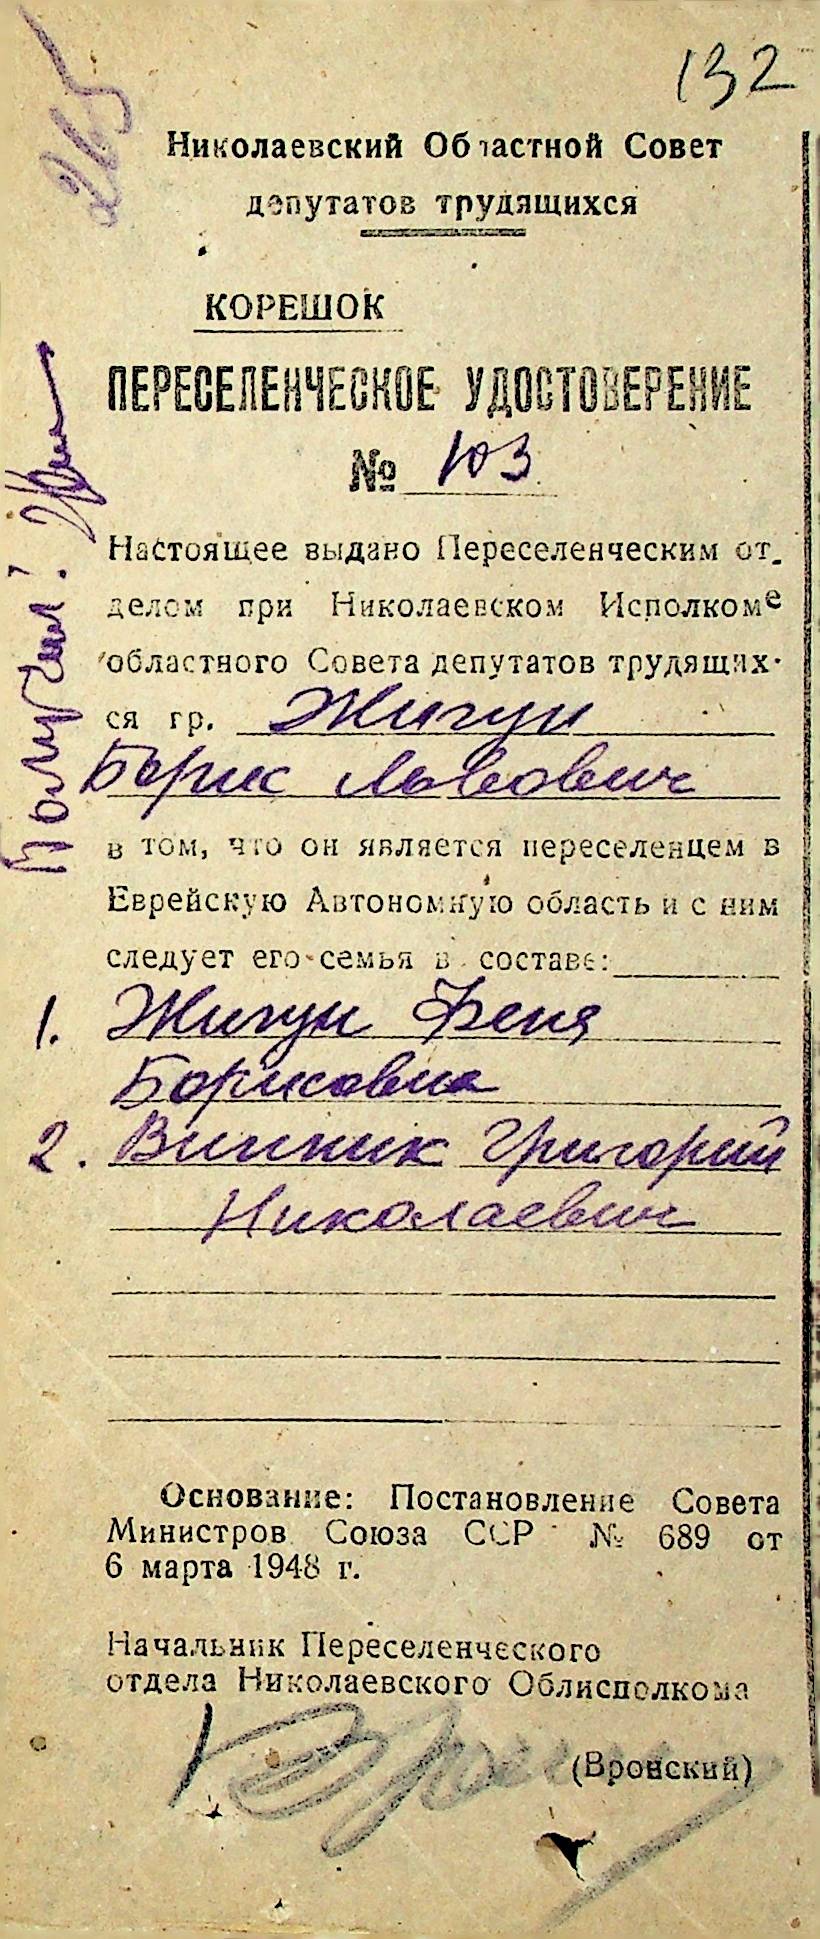 132
265
Николаевский Областной Совет
депутатов трудящихся
КОРЕШОК
ПЕРЕСЕЛЕНЧЕСКОЕ УДОСТОВЕРЕНИЕ
№ 103
Настоящее выдано Переселенческим от-
делом при Николаевском Исполкоме
областного Совета депутатов трудящих-
ся гр. Жигун
Борис Львович
в том, что он является переселенцем в
Еврейскую Автономную область и с ним
следует его семья в составе:
1. Жигун Феня
Борисовна
2. Винник Григорий
Николаевич
Основание: Постановление Совета
Министров Союза ССР № 689 от
6 марта 1948 г.
Начальник Переселенческого
отдела Николаевского Облисполкома
(Вронский)
Получил: